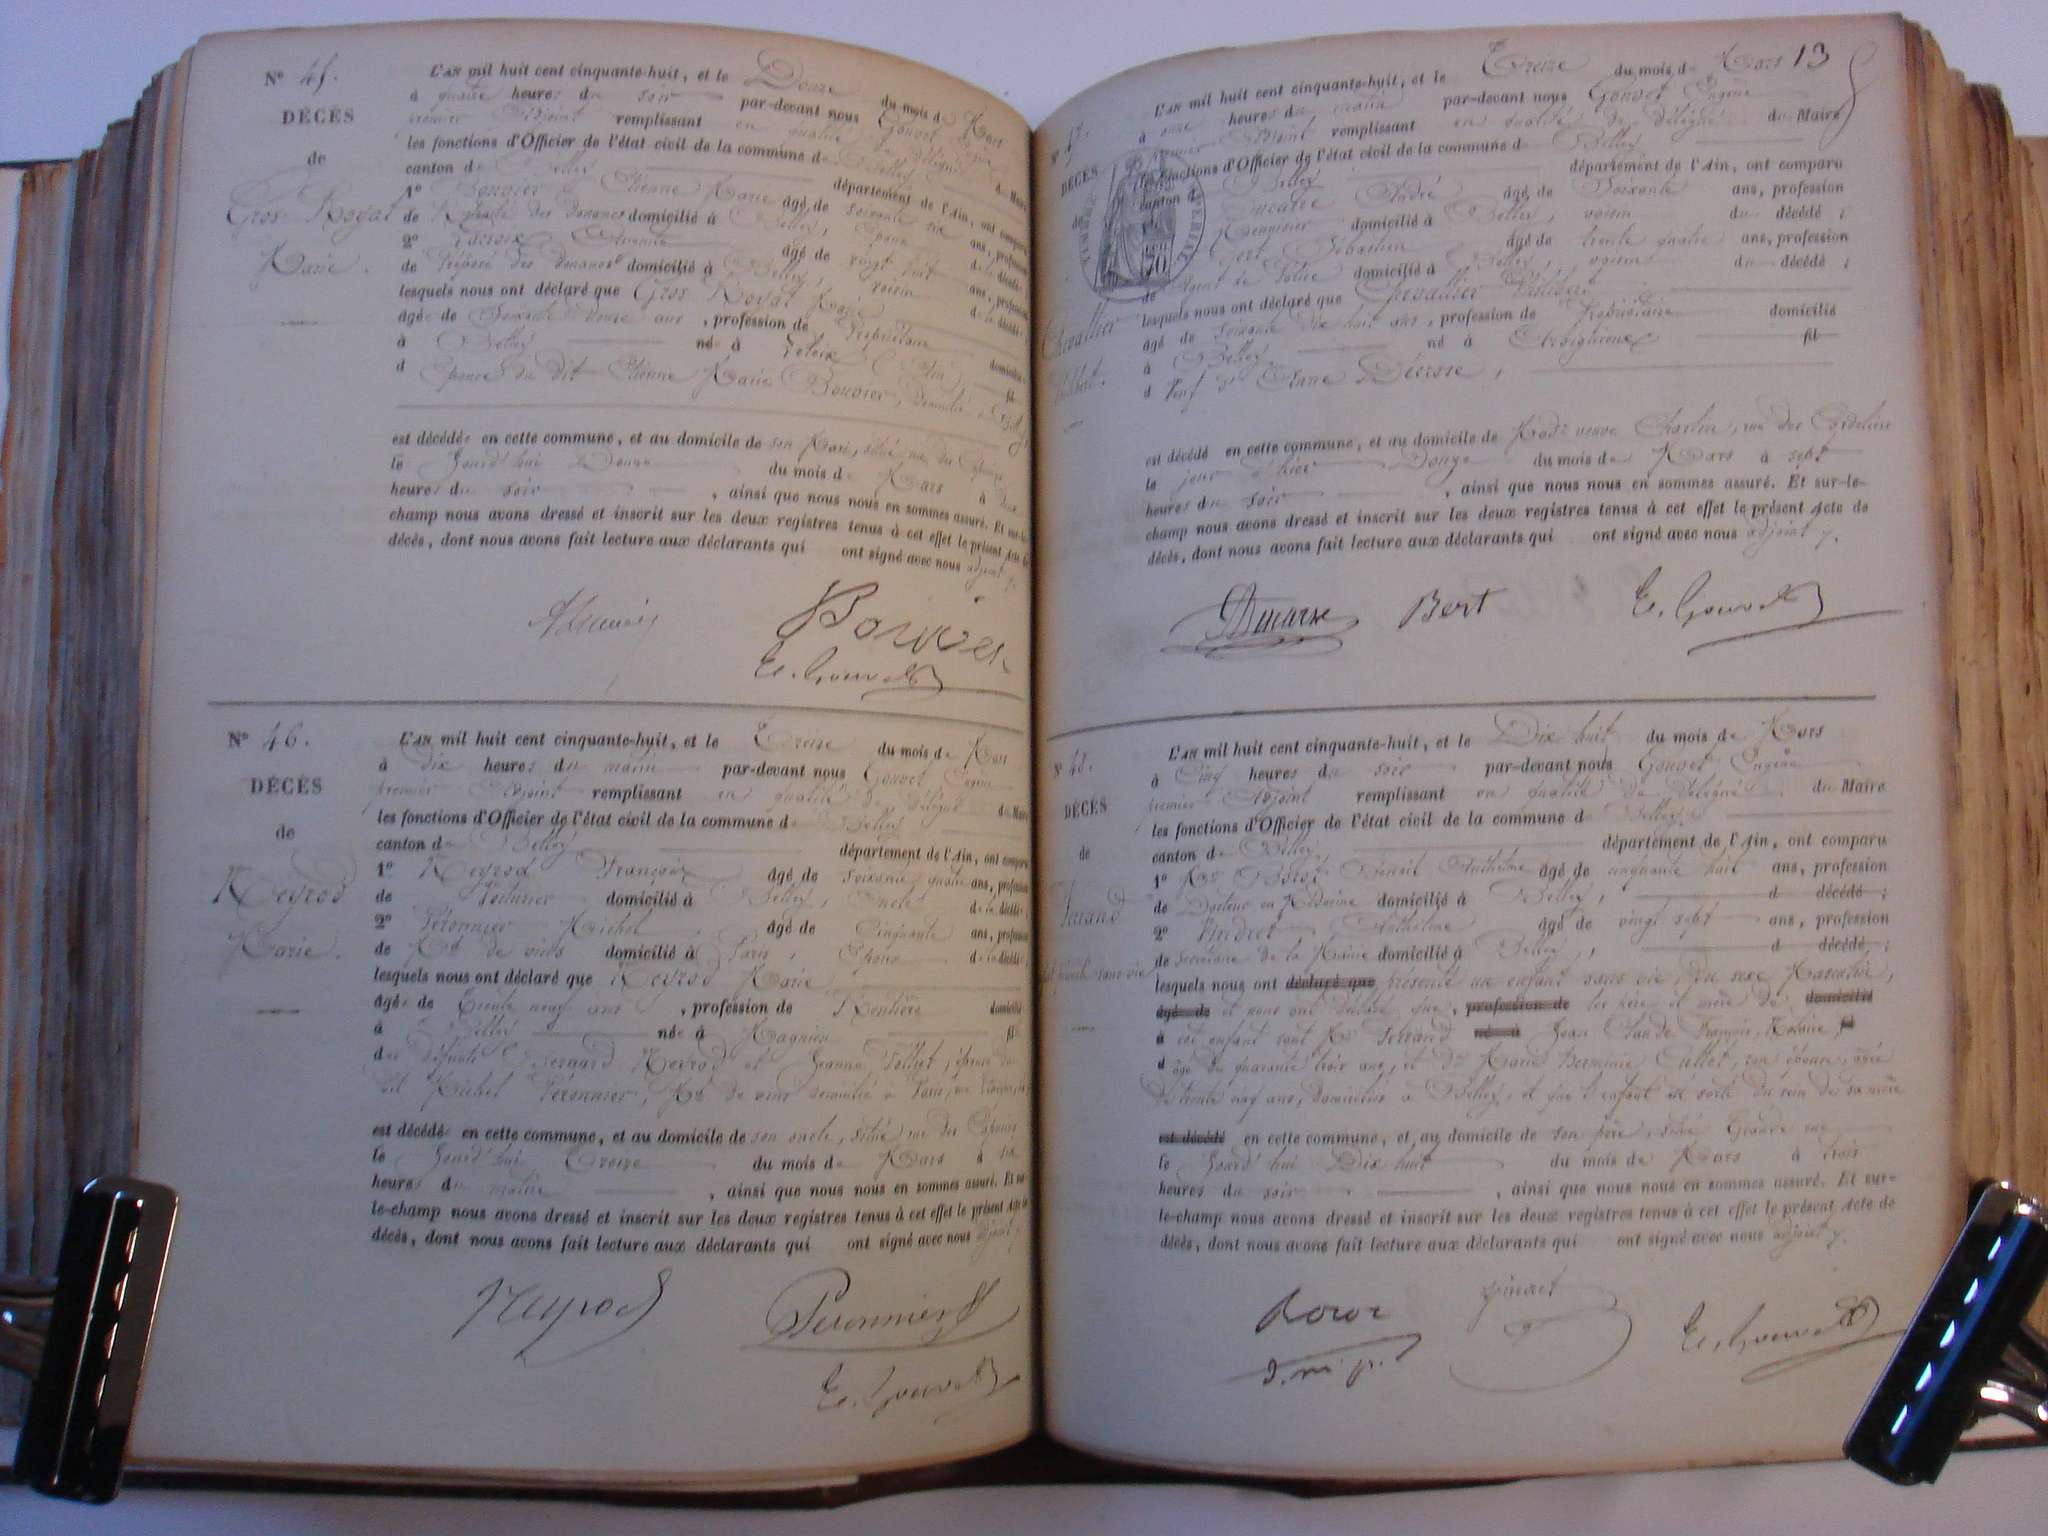 N° 45.
DÉCÈS
de
Gros Royat
Marie.
L'AN mil huit cent cinquante-huit, et le Douze du mois de Mars
à quatre heures du soir par-devant nous Gouvet Eugène
premier Adjoint remplissant en qualité de délégué du Maire
les fonctions d'Officier de l'état civil de la commune de Belley
canton de Belley département de l'Ain, ont comparu
1° Bouvier Etienne Marie âgé de soixante six ans, profession
de Retraité des douanes domicilié à Belley, époux de la décédée;
2° Lacroix âgé de vingt huit ans, profession
de Préposé des douanes domicilié à Belley, voisin de la décédée;
lesquels nous ont déclaré que Gros Royat Marie
âgée de Soixante ans, profession de Propriétaire domiciliée
à Belley née à (Ain) fil
d Epouse du dit Etienne Marie Bouvier, domicilié à Belley
est décédée en cette commune, et au domicile de son Mari, située rue des
le Jourd'hui Douze du mois de Mars à deux
heures du soir, ainsi que nous nous en sommes assuré. Et sur-le-
champ nous avons dressé et inscrit sur les deux registres tenus à cet effet le présent Acte de
décès, dont nous avons fait lecture aux déclarants qui ont signé avec nous adjoint
Bouvier
E. Gouvet
N° 46.
DÉCÈS
de
Neyrod
Marie.
L'AN mil huit cent cinquante-huit, et le Treize du mois de Mars
à dix heures du matin par-devant nous Gouvet Eugène
premier Adjoint remplissant en qualité de délégué du Maire
les fonctions d'Officier de l'état civil de la commune de Belley
canton de Belley département de l'Ain, ont comparu
1° Neyrod François âgé de soixante quatre ans, profession
de Voiturier domicilié à Belley, oncle de la décédée;
2° Peronnier Michel âgé de Cinquante ans, profession
de Md de vins domicilié à Paris, Epoux de la décédée;
lesquels nous ont déclaré que Neyrod Marie
âgée de Trente neuf ans, profession de Rentière domicilié
à Belley née à Magnieu fil
des défunts Bernard Neyrod et Jeanne, épouse du
dit Michel Peronnier, Md de vins domicilié à Paris, rue
est décédée en cette commune, et au domicile de son oncle, située rue des Capucins
le Jourd'hui Treize du mois de Mars à six
heures du matin, ainsi que nous nous en sommes assuré. Et sur-
le-champ nous avons dressé et inscrit sur les deux registres tenus à cet effet le présent Acte de
décès, dont nous avons fait lecture aux déclarants qui ont signé avec nous adjoint
Neyrod
Peronnier
E. Gouvet
13
N° 47.
DÉCÈS
de
Chevallier
Philibert.
L'AN mil huit cent cinquante-huit, et le Treize du mois de Mars
à onze heures du matin par-devant nous Gouvet Eugène
premier Adjoint remplissant en qualité de délégué du Maire
les fonctions d'Officier de l'état civil de la commune de Belley
canton de Belley département de l'Ain, ont comparu
Ducarre André âgé de Soixante ans, profession
Menuisier domicilié à Belley, voisin du décédé;
Bert Sébastien âgé de trente quatre ans, profession
de Agent de Police domicilié à Belley, voisin du décédé;
lesquels nous ont déclaré que Chevallier Philibert
âgé de soixante dix huit ans, profession de Propriétaire domicilié
à Belley né à fil
d Veuf de Decroze,
est décédé en cette commune, et au domicile de Made veuve Charlin, rue des Cordeliers
le jour d'hier Douze du mois de Mars à sept
heures du soir, ainsi que nous nous en sommes assuré. Et sur-le-
champ nous avons dressé et inscrit sur les deux registres tenus à cet effet le présent Acte de
décès, dont nous avons fait lecture aux déclarants qui ont signé avec nous adjoint
Ducarre
Bert
E. Gouvet
N° 48.
DÉCÈS
de
sans vie
L'AN mil huit cent cinquante-huit, et le Dix huit du mois de Mars
à Cinq heures du soir par-devant nous Gouvet Eugène
premier Adjoint remplissant en qualité de délégué du Maire
les fonctions d'Officier de l'état civil de la commune de Belley
canton de Belley département de l'Ain, ont comparu
1° Mr Benoit Anthelme âgé de cinquante huit ans, profession
de Docteur en Médecine domicilié à Belley, d décédé;
2° Pindret Anthelme âgé de vingt sept ans, profession
de Secrétaire de la Mairie domicilié à Belley, d décédé;
lesquels nous ont déclaré que présenté un enfant sans vie, du sexe Masculin,
âgé de et nous ont déclaré que, profession de les père et mère de domicilié
à cet enfant sont Mr né à Jean Claude François, Notaire fil
d âgé de quarante trois ans, et De Marie Herminie Cullet, son épouse, âgée
de trente neuf ans, domiciliés à Belley, et que l'enfant est sorti du sein de sa mère
est décédé en cette commune, et au domicile de son père, situé Grande rue
le Jourd'hui Dix huit du mois de Mars à trois
heures du soir, ainsi que nous nous en sommes assuré. Et sur-
le-champ nous avons dressé et inscrit sur les deux registres tenus à cet effet le présent Acte de
décès, dont nous avons fait lecture aux déclarants qui ont signé avec nous adjoint
d. m. p.
E. Gouvet